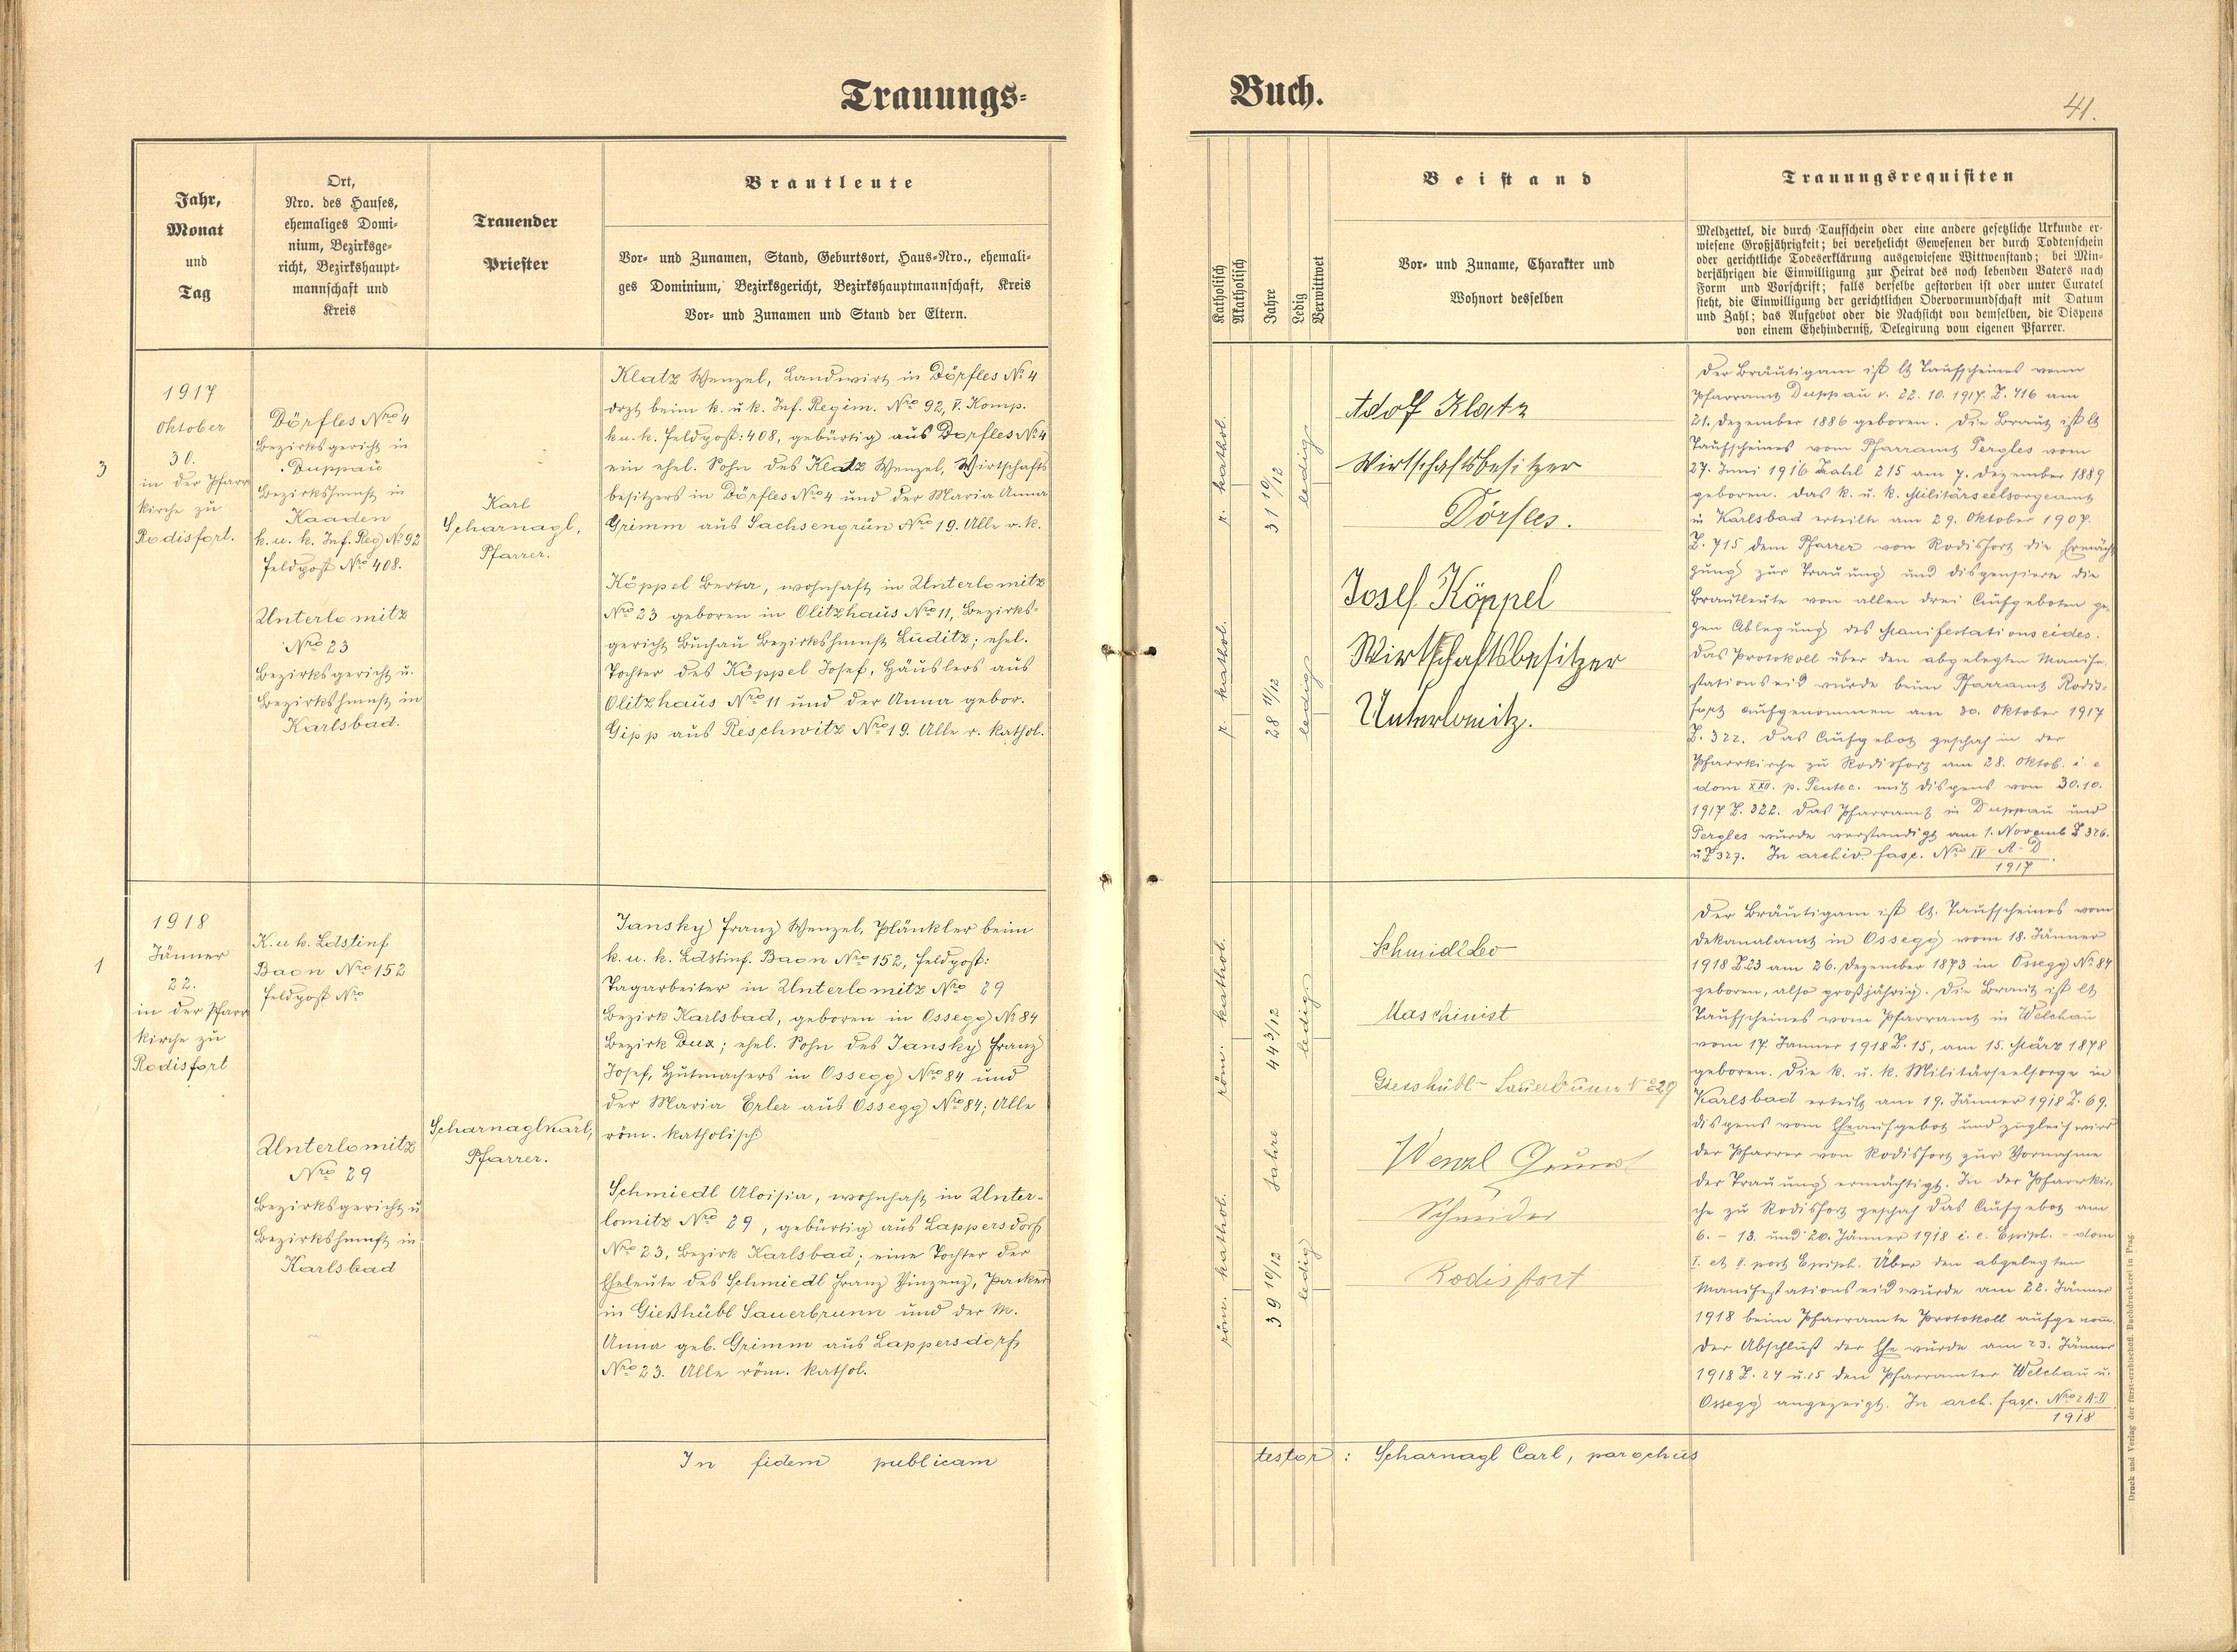 Trauungs-
Jahr,
Monat
und
Tag
Ort,
Nro. des Hauses,
ehemaliges Domi-
nium, Bezirksge-
richt, Bezirkshaupt-
mannschaft und
Kreis
Trauender
Priester
Brautleute
Vor- und Zunamen, Stand, Geburtsort, Haus-Nro., ehemali-
ges Dominium, Bezirksgericht, Bezirkshauptmannschaft, Kreis
Vor- und Zunamen und Stand der Eltern.
3
1917
Oktober
30.
in der Pfarr
kirche zu
Rodisfort.
Dörfles Nro 4
Bezirksgericht in
Duppau
Bezirkshmsft in
Kaaden
k. u. k. Inf. Reg No 92
Feldpost Nro 408.
Unterlomitz
Nro 23
Bezirksgericht u.
Bezirkshmsft in
Karlsbad.
Karl
Scharnagl,
Pfarrer.
Klatz Wenzel, Landwirt in Dörfles No 4
drzt beim k. u k. Inf. Regim. Nro 92, V. Komp.
k u. k. Feldpost: 408, gebürtig aus Dörfles No 4
ein ehel. Sohn des Klatz Wenzel, Wirtschafts
besitzers in Dörfles Nro 4 und der Maria Anna
Grimm aus Sachsengrün Nro 19. Alle r. k.
Köppel Berta, wohnhaft in Unterlomitz
Nro 23 geboren in Olitzhaus Nro 11, Bezirks-
gericht Buchau Bezirkshmsft Luditz; ehel.
Tochter des Köppel Josef, Häuslers aus
Olitzhaus Nro 11 und der Anna gebor.
Gipp aus Reschwitz Nro 19. Alle r. kathol.
1
1918
Jänner
22.
in der Pfarr
kirche zu
Rodisfort
K. u k. Ldstinf
Baon Nro 152
Feldpost Nro
Unterlomitz
Nro 29
Bezirksgericht u
Bezirkshmsft in
Karlsbad
Scharnagl Karl,
Pfarrer.
Jansky Franz Wenzel, Plänkler beim
k. u. k. Ldstinf. Baon Nro 152, Feldpost:
Tagarbeiter in Unterlomitz Nro 29
Bezirk Karlsbad, geboren in Ossegg No 84
Bezirk Dux; ehel. Sohn des Jansky Franz
Josef, Hutmachers in Ossegg Nro 84 und
der Maria Erler aus Ossegg Nro 84; Alle
röm. katholisch
Schmiedl Aloisia, wohnhaft in Unter-
lomitz Nro 29, gebürtig aus Lappersdorf
Nro 23, Bezirk Karlsbad; eine Tochter der
Eheleute des Schmiedl Franz Vinzenz, Packer
in Gießhübl Sauerbrunn und der M.
Anna geb. Grimm aus Lappersdorf
Nro 23. Alle röm. kathol.
In fidem publicam
Buch.
41.
Katholisch
Akatholisch
Jahre
Ledig
Verwittwet
Beistand
Vor- und Zuname, Charakter und
Wohnort desselben
Trauungsrequisiten
Meldzettel, die durch Taufschein oder eine andere gesetzliche Urkunde er-
wiesene Großjährigkeit; bei verehelicht Gewesenen der durch Todtenschein
oder gerichtliche Todeserklärung ausgewiesene Wittwenstand; bei Min-
derjährigen die Einwilligung zur Heirat des noch lebenden Vaters nach
Form und Vorschrift; falls derselbe gestorben ist oder unter Curatel
steht, die Einwilligung der gerichtlichen Obervormundschaft mit Datum
und Zahl; das Aufgebot oder die Nachsicht von demselben, die Dispens
von einem Ehehinderniß, Delegirung vom eigenen Pfarrer.
r. kathol.
31 10/12
ledig
r. kathol.
28 11/12
ledig
Adolf Klatz
Wirtschaftsbesitzer
Dörfles.
Josef Köppel
Wirtschaftsbesitzer
Unterlomitz.
Der Bräutigam ist lt Taufscheines vom
Pfarramt Duppau v. 22. 10. 1917. Z. 716 am
21. Dezember 1886 geboren. Die Braut ist lt
Taufscheines vom Pfarramt Pergles vom
27. Juni 1916 Zahl 215 am 7. Dezember 1889
geboren. Das k. u. k. Militärseelsorgeamt
in Karlsbad erteilte am 29. Oktober 1907.
Z. 715 dem Pfarrer von Rodisfort die Ermächti
gung zur Trauung und dispensierte die
Brautleute von allen drei Aufgeboten ge-
gen Ablegung des Manifestationseides.
Das Protokoll über den abgelegten Manife
stationseid wurde beim Pfarramt Rodis-
fort aufgenommen am 30. Oktober 1917
Z. 322. Das Aufgebot geschah in der
Pfarrkirche zu Rodisfort am 28. Oktob. i. e
dom XXII. p. Pentec. mit Dispens vom 30. 10.
1917 Z. 322. Das Pfarramt in Duppau und
Pergles wurde verständigt am 1. Novemb Z 326.
u Z 327. In archiv. fasc. Nro IV A-D
1917
röm. kathol.
44 3/12
ledig
röm. kathol.
39 10/12 Jahre
ledig
Schmidl Leo
Maschinist
Giesshübl-Sauerbrunn No 29
Wenzl
Schneider
Rodisfort
Der Bräutigam ist lt. Taufscheines vom
Dekanalamt in Ossegg vom 18. Jänner
1918 Z 23 am 26. Dezember 1873 in Ossegg No 84
geboren, also großjährig. Die Braut ist lt
Taufscheines vom Pfarramt in Welchau
vom 17. Jänner 1918 Z. 15, am 15. März 1878
geboren. Die k. u. k. Militärseelsorge in
Karlsbad erteilt am 19. Jänner 1918 Z. 69.
Dispens vom Eheaufgebot und zugleich wird
der Pfarrer von Rodisfort zur Vornahme
der Trauung ermächtigt. In der Pfarrkir-
che zu Rodisfort geschah das Aufgebot am
6. - 13. und 20. Jänner 1918 i. e. Epiph. - dom
I. et II. post Epiph. Über den abgelegten
Manifestationseid wurde am 22. Jänner
1918 beim Pfarramte Protokoll aufgenom.
Der Abschluß der Ehe wurde am 23. Jänner
1918 Z. 24 u. 25 den Pfarrämter Welchau u.
Ossegg angezeigt. In arch. fasc. Nro 2 A-D
1918
testor: Scharnagl Carl, parochus
Druck und Verlag der fürst-erzbischöfl. Buchdruckerei in Prag.